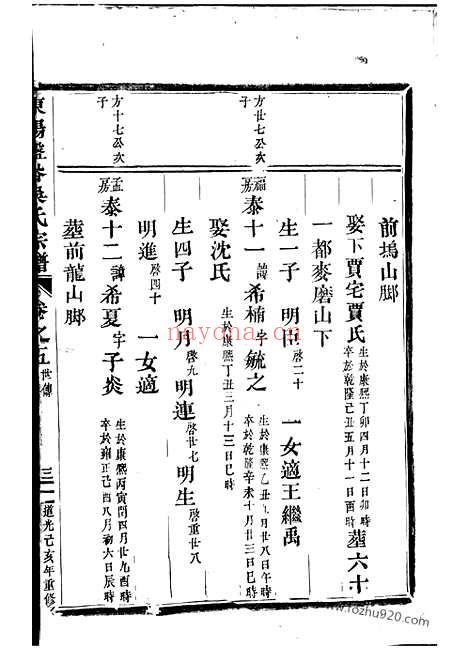 前塢山脚
娶下賈宅賈氏 生於康熙丁卯四月十二日卯時 卒於乾隆己丑五月十一日酉時 葬六十
一都麥磨山下
生一子 明屯 啓二十 一女適王繼禹
方廿七公次子
福房 泰十一 諱希楠 字毓之 生於康熙乙丑五月廿八日午時 卒於乾隆辛未十月廿三日巳時
娶沈氏 生於康熙丁丑三月十三日巳時
生四子 明月 啓九 明連 啓廿七 明生 啓重廿八
明進 啓四十 一女適
方十七公次子
孟房 泰十二 諱希夏 字子炎 生於康熙丙寅閏四月廿九酉時 卒於雍正己酉八月初六日辰時
葬前龍山脚
東陽 吳氏宗譜 卷之五 世傳 三 道光己亥年重修
www.tozhu920.com
www.tozhu920.com